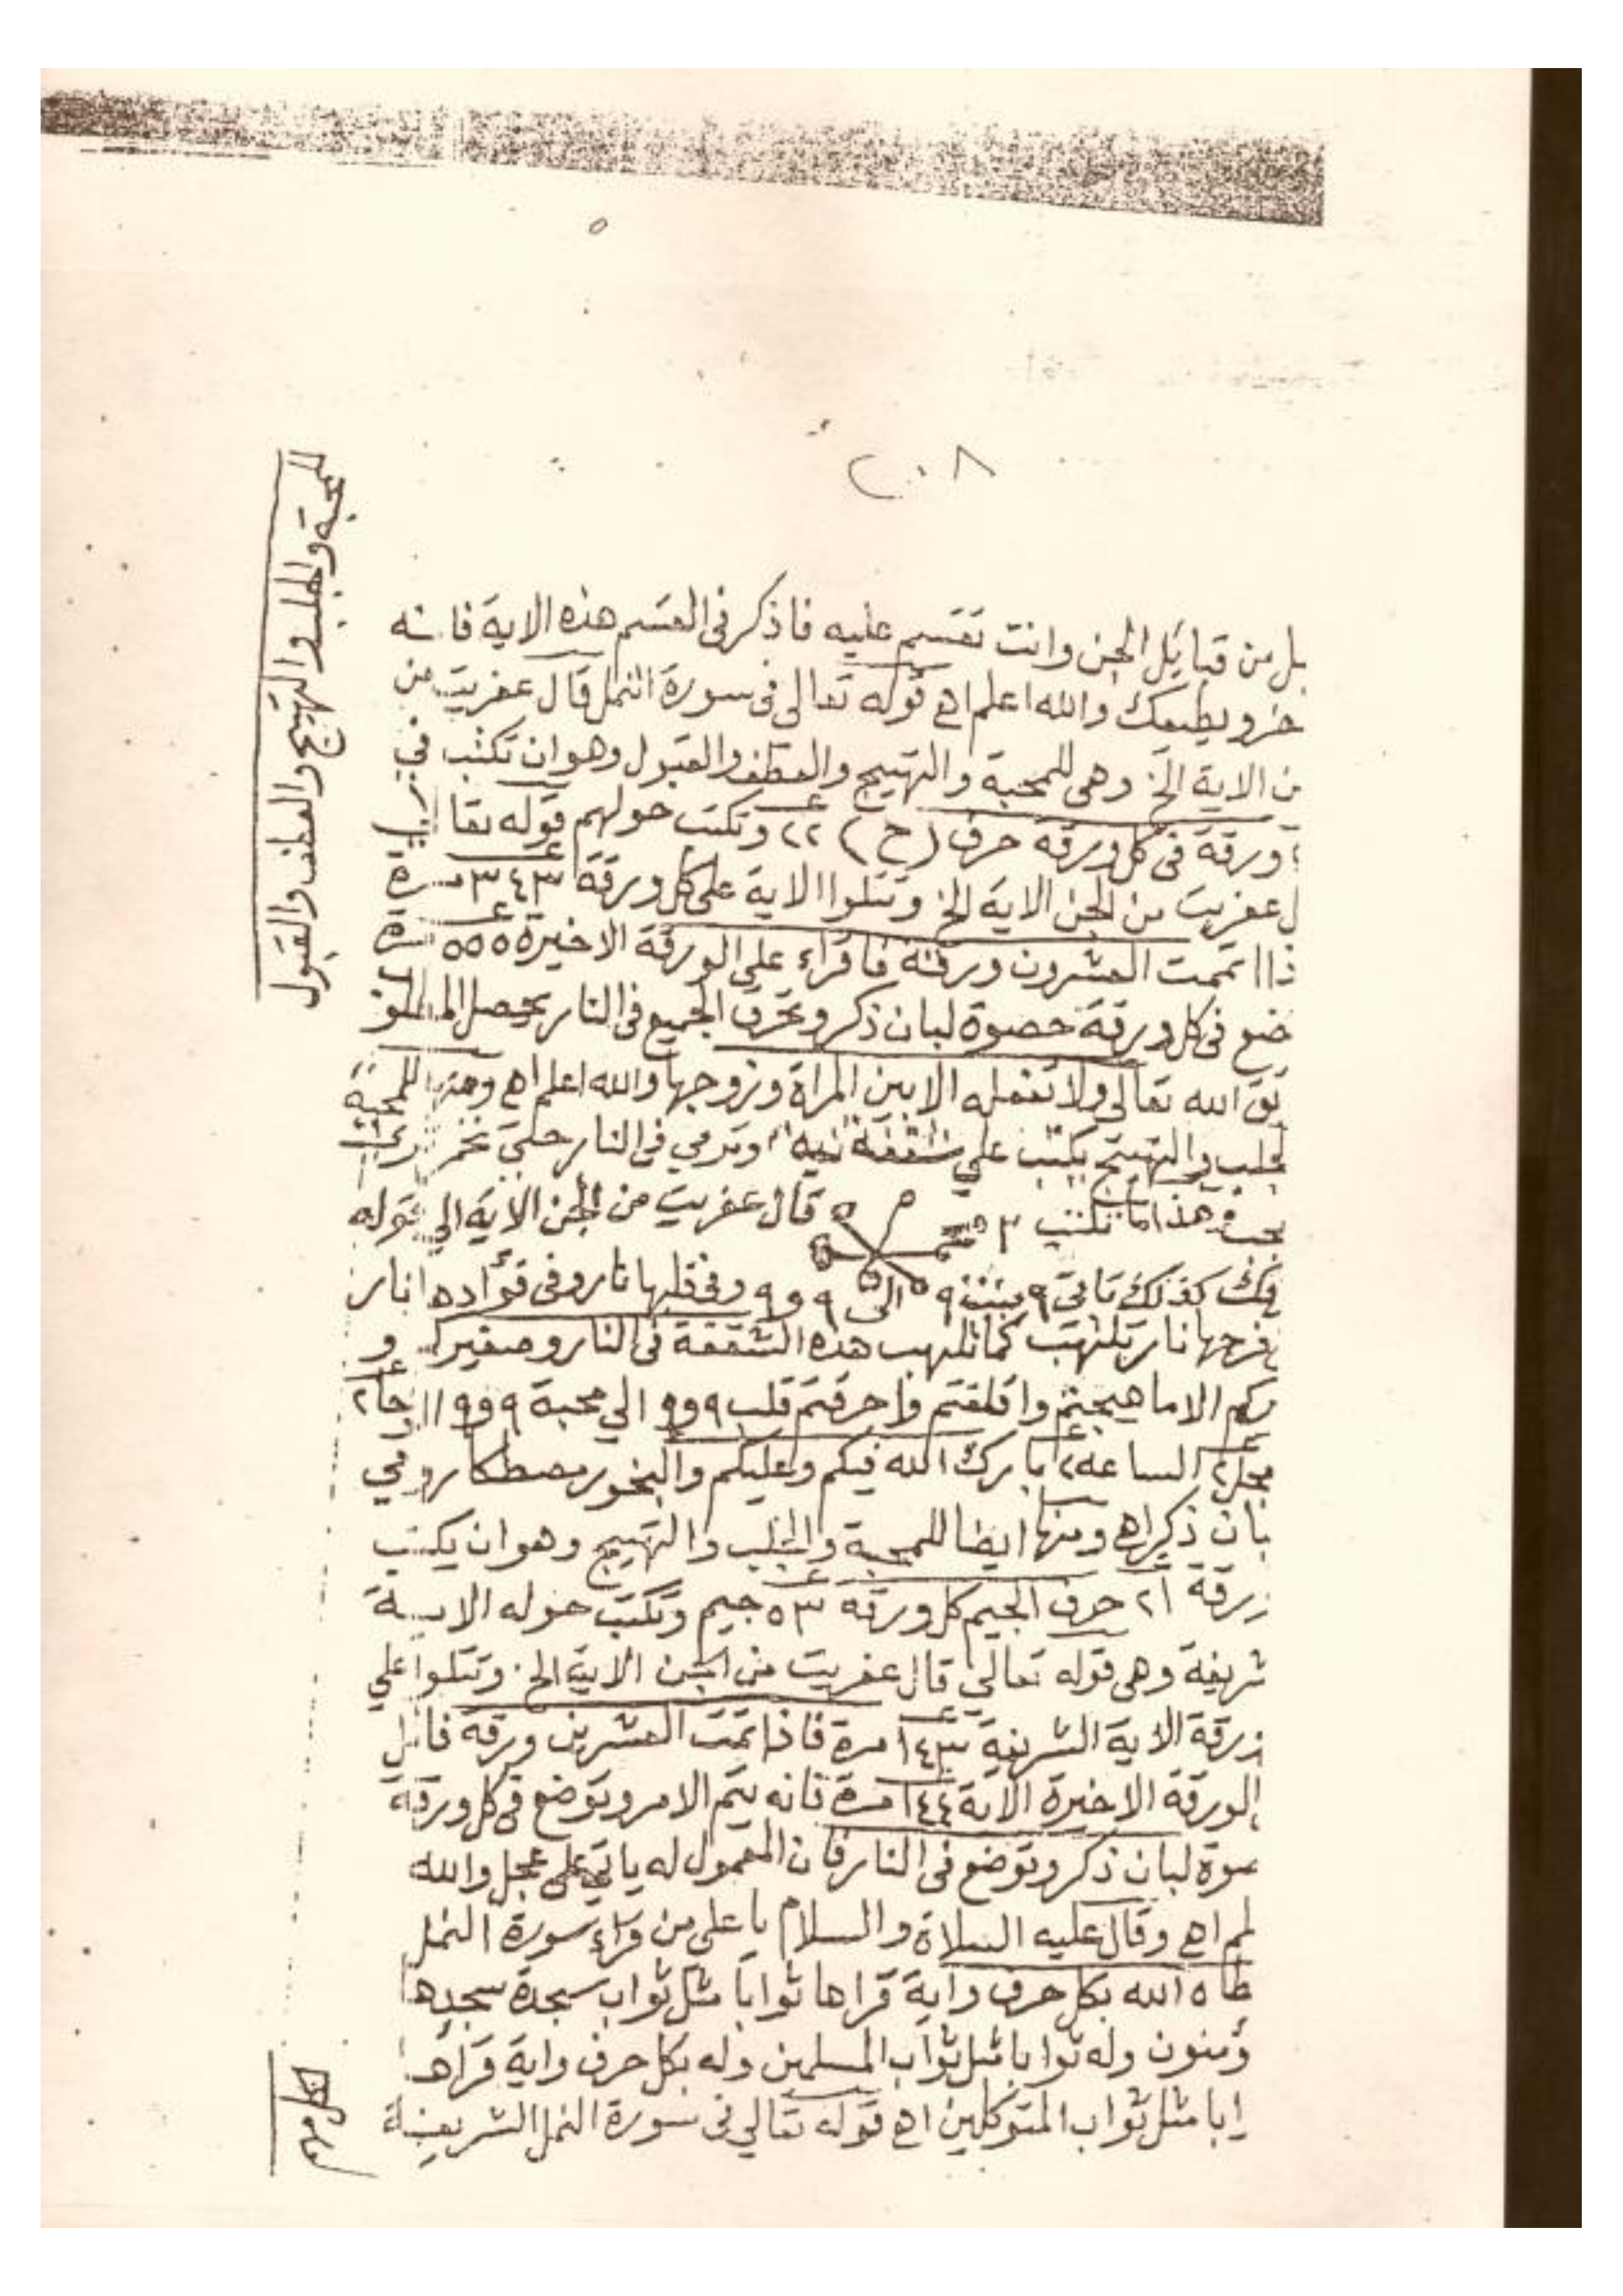 ٢٠٨
بل من قبايل الجن وانت تقسم عليه فاذكر فى القسم هذه الاية فانه
ويطيعك والله اعلم اهـ قوله تعالى فى سورة النمل قال عفريت من
الاية الخ وهى للمحبة والتهييج والعطف والقبول وهو ان تكتب في
ورقة فى كل ورقة حرف (ح) ٢٢ وتكتب حولهم قوله تعا
ل عفريت من الجن الاية الخ وتتلوا الاية على كل ورقة ٣٤٣ مرة
ذا اتممت العشرون ورقة فاقراء على الورقة الاخيرة ٥٥٥ مرة
ضع فى كل ورقة حصوة لبان ذكر وتحرق الجميع فى النار يحصل
الله تعالى ولا تفعله الا بين المراة وزوجها والله اعلم اهـ ومنها
والتهييج يكتب على شقفة نيه وترمي فى النار حتى
هذا ما تكتب قال عفريت من الجن الاية الي قوله
كذلك تاتى ٩ بنت ٩ الى ٩ و ٩ وفى قلبها نار وفى فؤادها نار
فرجها نار تلتهب كما تلتهب هذه الشقفة فى النار
الا ما هيجتم واقلقتم واحرقتم قلب ٩ و ٩ الي محبة ٩ و ٩
الساعه ٢ بارك الله فيكم وعليكم والبخور مصطكا رومي
بان ذكر اهـ ومنها ايضا للمحبة والجلب والتهييج وهو ان يكتب
٢١ حرف الجيم كل ورقة ٥٣ جيم وتكتب حوله الاية
شريفة وهى قوله تعالي قال عفريت من الجن الاية الخ وتتلوا علي
الاية الشريفة ١٤٣ مرة فاذا تمت العشرين ورقة
الورقة الاخيرة الاية ١٤٤ مرة فانه يتم الامر وتوضع فى كل ورقة
صوة لبان ذكر وتوضع فى النار فان المعمول له ياتي على عجل والله
لم اهـ وقال عليه السلاة والسلام يا على من قراء سورة النمل
طاه الله بكل حرف واية قراها ثوابا مثل ثواب سجدة سجدها
ؤمنون وله ثوابا مثل ثواب المسلمين وله بكل حرف واية قراها
ابا مثل ثواب المتوكلين اهـ قوله تعالي فى سورة النمل الشريفة
للمحبة والجلب والتهييج والعطف والقبول